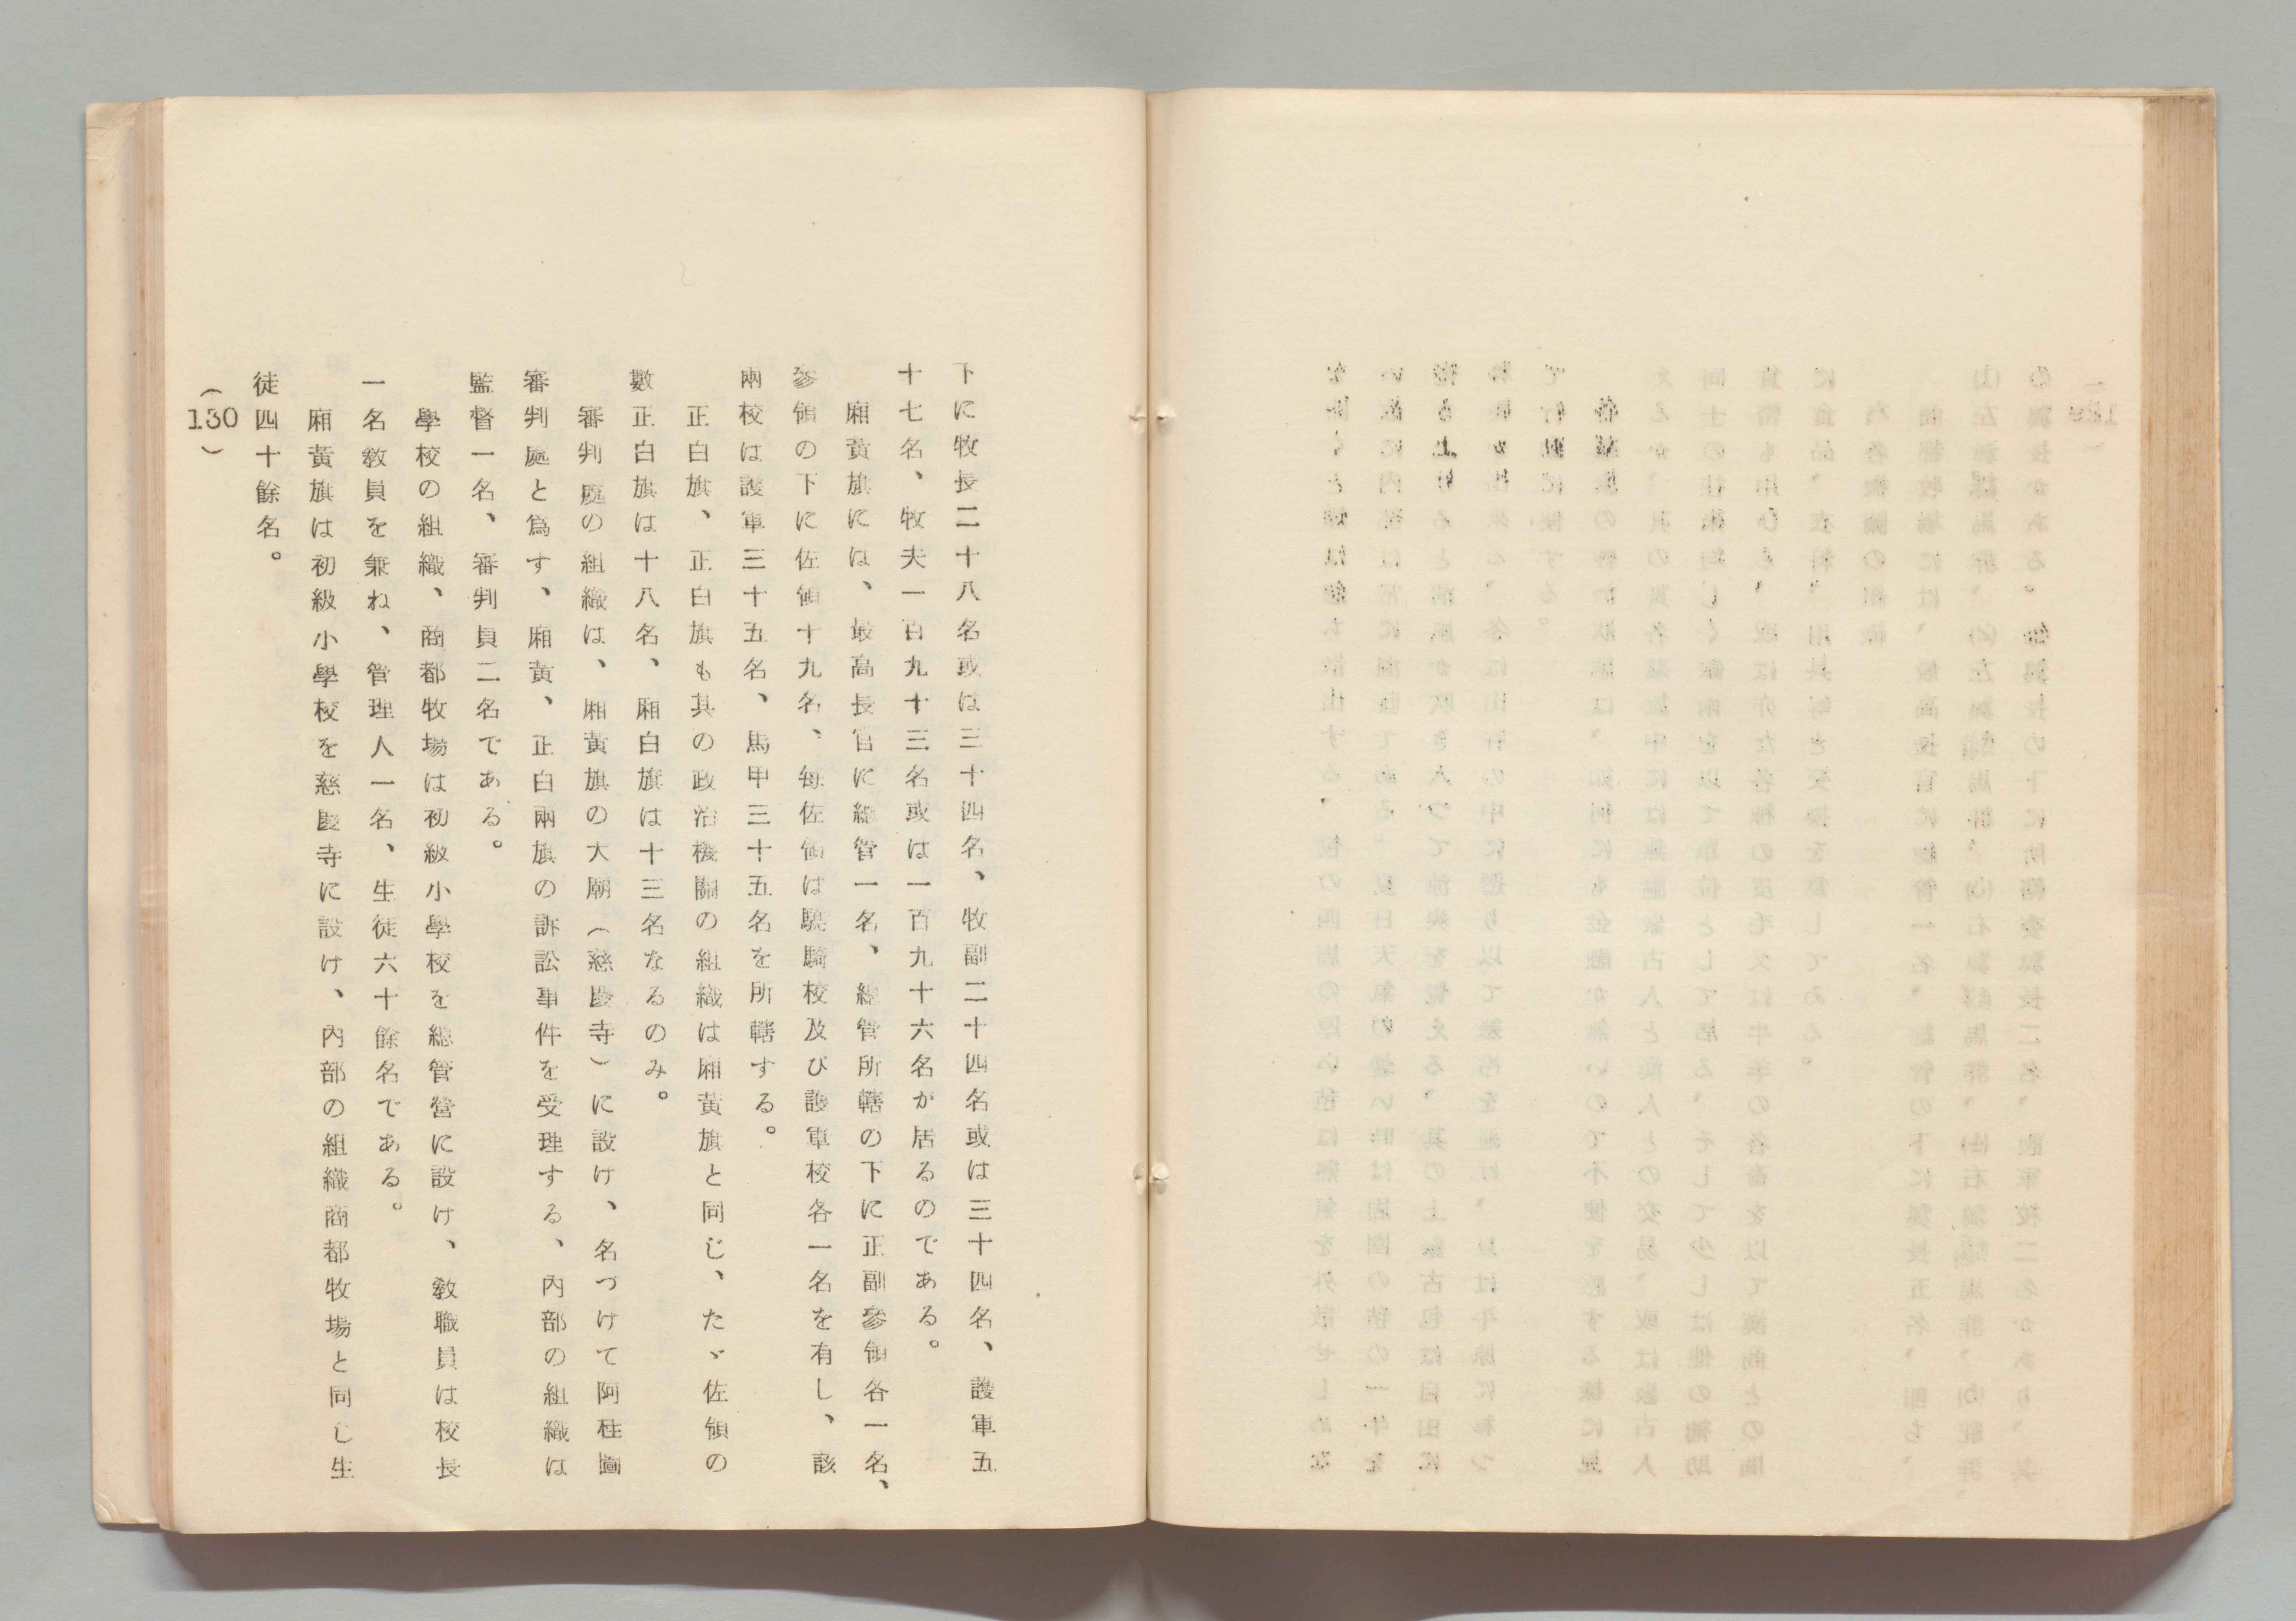 下に牧長二十八名或は三十四名、牧副二十四名或は三十四名、護軍五
十七名、牧夫一百九十三名或は一百九十六名が居るのである。
廂黄旗には、最高長官に總管一名、總管所轄の下に正副參領各一名、
參領の下に佐領十九名、每佐領は驍騎校及び護軍校各一名を有し、該
兩校は護軍三十五名、馬甲三十五名を所轄する。
正白旗、正白旗も其の政治機關の組織は廂黄旗と同じ、たゞ佐領の
數正白旗は十八名、廂白旗は十三名なるのみ。
審判處の組織は、廂黄旗の大廟（慈慶寺）に設け、名づけて阿桂圖
審判處と爲す、廂黄、正白兩旗の訴訟事件を受理する、内部の組織は
監督一名、審判員二名である。
學校の組織、商都牧場は初級小學校を總管營に設け、教職員は校長
一名教員を兼ね、管理人一名、生徒六十餘名である。
廂黄旗は初級小學校を慈慶寺に設け、内部の組織商都牧場と同じ生
徒四十餘名。
（130）